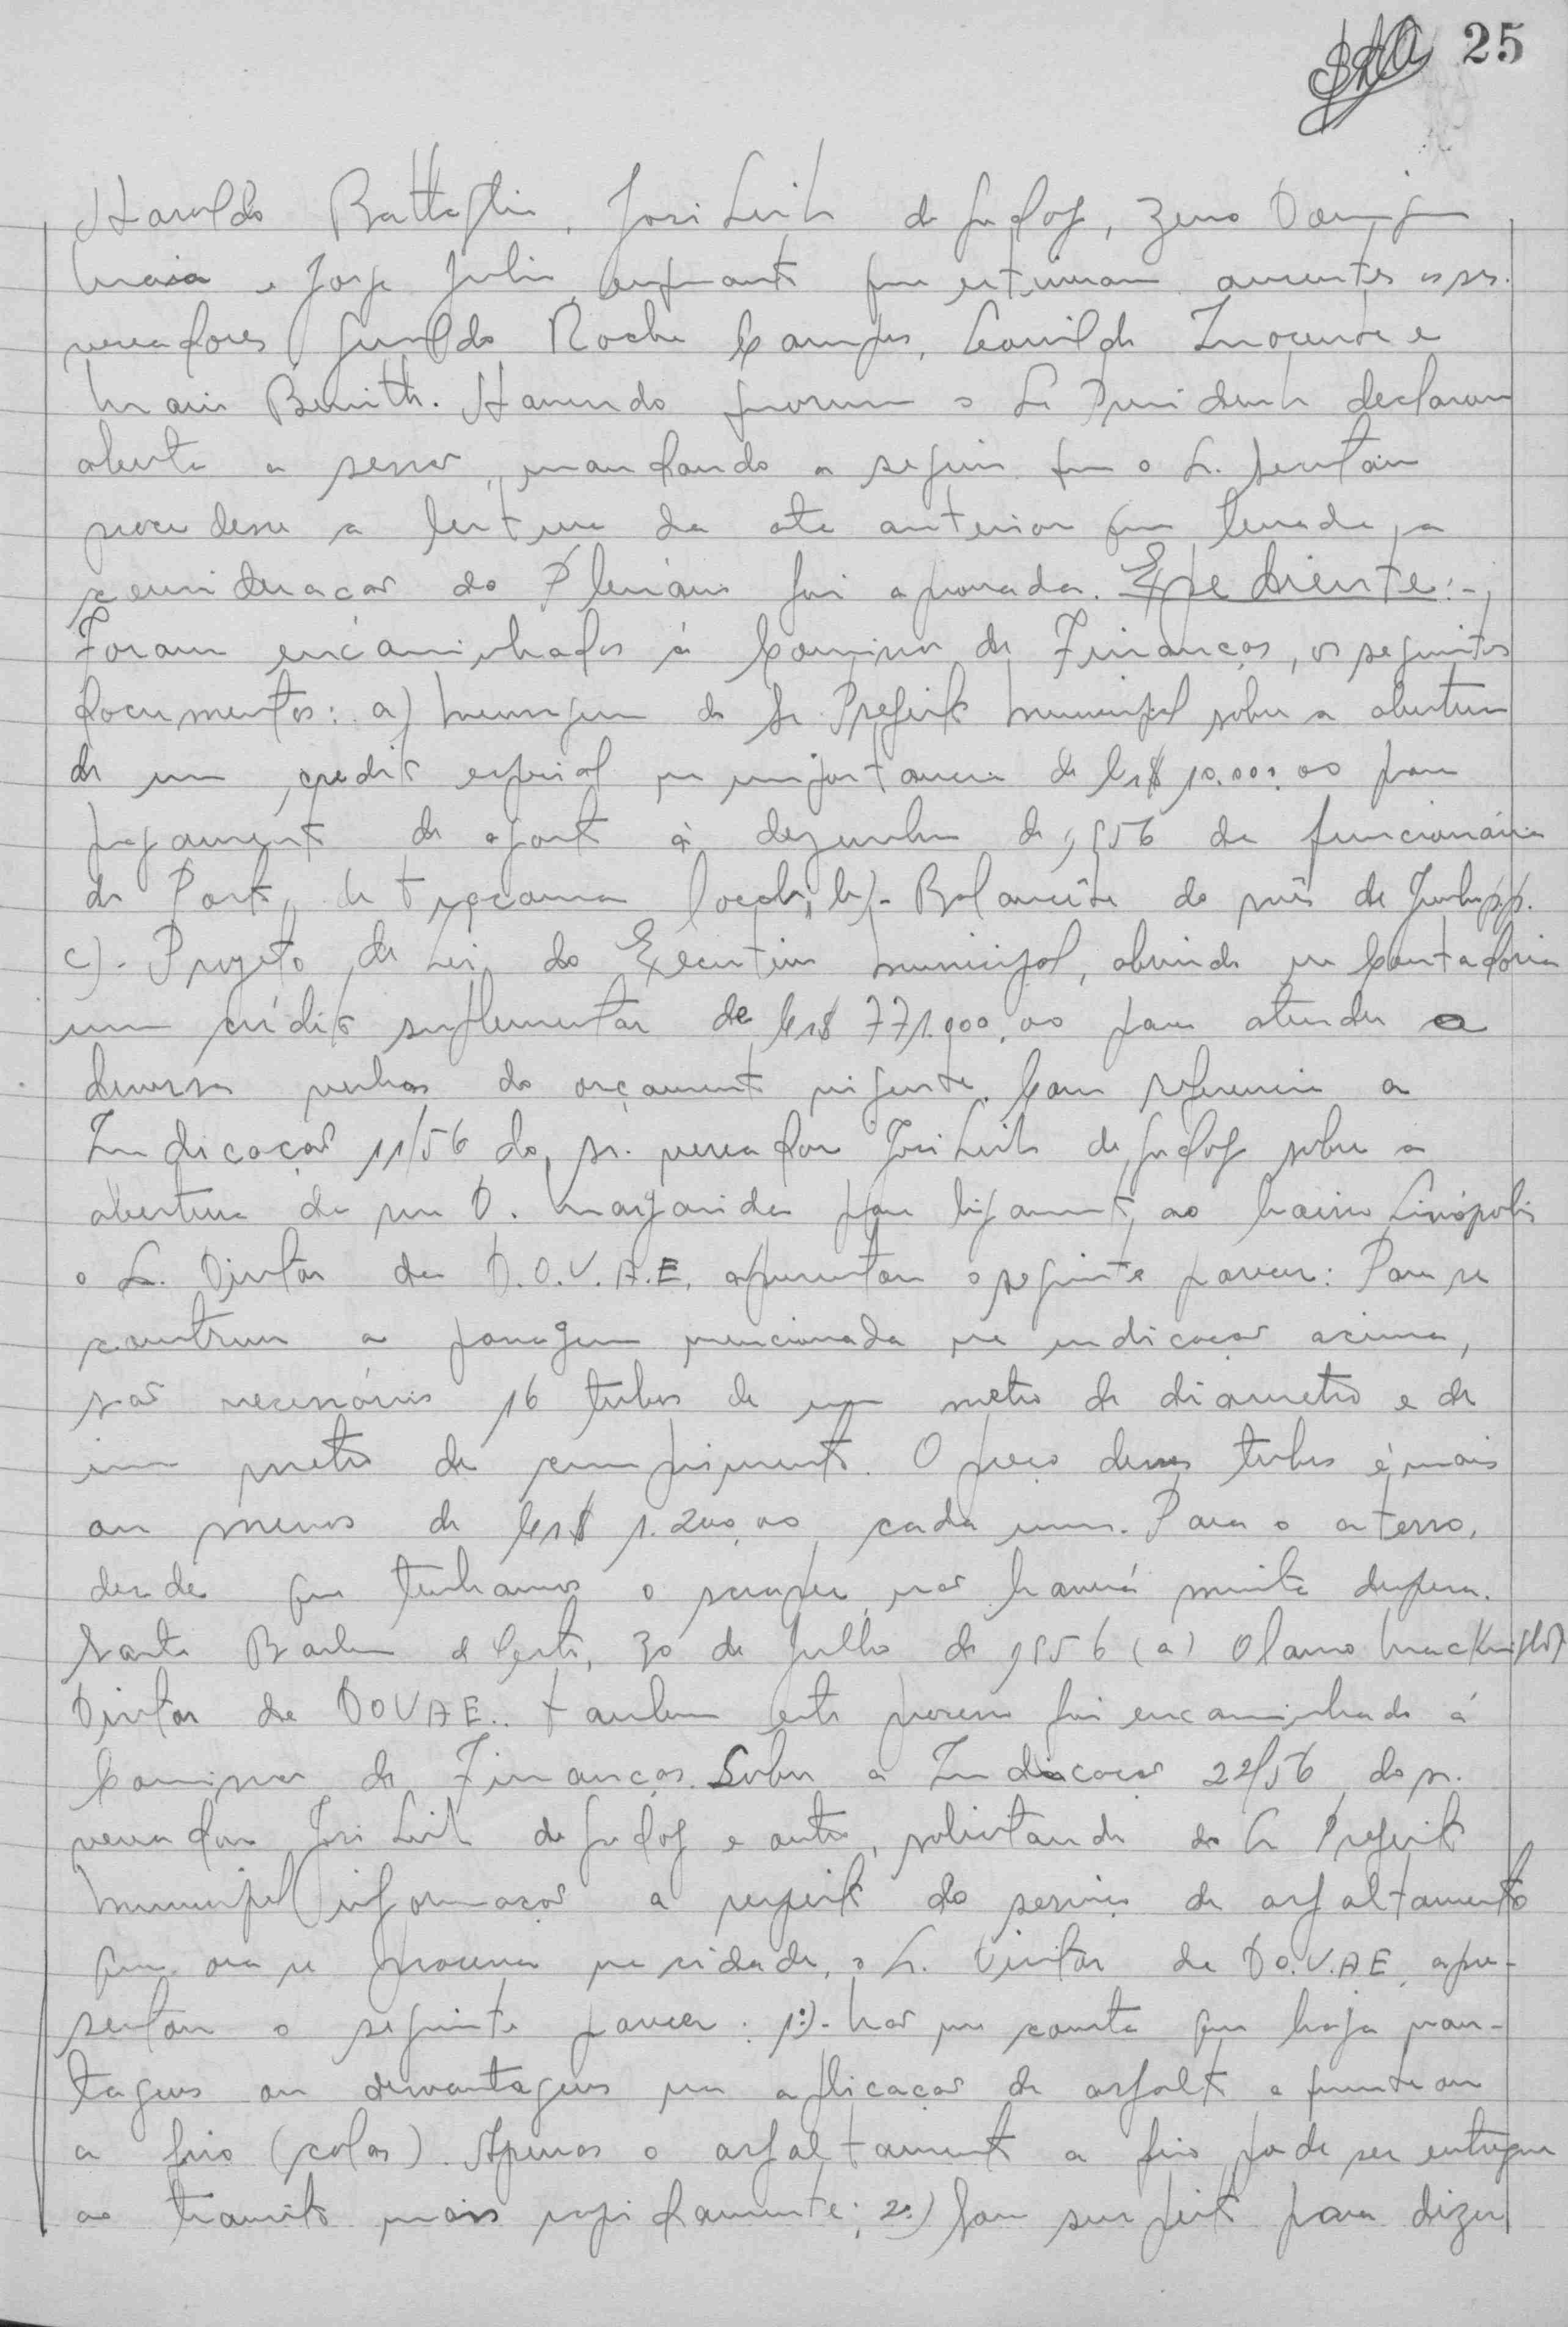 25
Haroldo Battaglia, José Leite de Godoy, Zeno Domingos
Maia e Jorge Julio, enquanto que estiveram ausentes os srs.
vereadores Geraldo Rocha Campos, Leonildo Inocente e
Mario Benith. Havendo quorum o Sr Presidente declarou
aberta a sessão, mandando a seguir que o Sr. secretario
procedesse a leitura da ata anterior que levada, a
consideração do Plenário foi aprovada. Expediente:-,
Foram encaminhados á Comissão de Finanças, os seguintes
documentos: a) Mensagem do Sr. Prefeito Municipal sobre a abertura
de um credito especial na importancia de Cr$ 10.000,00 para
pagamento de agosto á dezembro de 1956 da funcionária
do Posto de tracoma local; b)- Balancête do mês de Junho p.p.
c)- Projeto de Lei do Executivo Municipal, abrindo na Contadoria
um crédito suplementar de Cr$ 771.000,00 para atender a
diversas verbas do orçamento vigente. Com referencia a
Indicação 11/56 do sr. vereador José Leite de Godoy sobre a
abertura da rua D. Margarida para ligamento ao bairro Linópolis
o Sr. Diretor da D.O.V.A.E. apresentou o seguinte parecer: Para se
construir a passagem mencionada na indicação acima,
são necessários 16 tubos de um metro de diametro e de
um metro de comprimento. O preço desses tubos é mais
ou menos de Cr$ 1.200,00 cada um. Para o aterro,
desde que tenhamos o scraper, não haverá muita despesa.
Santa Barbara d'Oeste, 30 de Julho de 1956 (a) Olavo MacKnight
Diretor da DOVAE. tambem este processo foi encaminhado á
Comissão de Finanças. Sobre a Indicação 22/56, do sr.
vereador José Leite de Godoy e outro, solicitando do Sr Prefeito
Municipal informação a respeito do serviço de asfaltamento
que ora se processa na cidade, o Sr. Diretor da D.O.V.A.E. apre-
sentou o seguinte parecer: 1º)- Não me consta que haja van-
tagens ou desvantagens na aplicação de asfalto a quente ou
a frio (colas). Apenas o asfaltamento a frio pode ser entregue
ao transito mais rapidamente; 2º) Sou suspeito para dizer